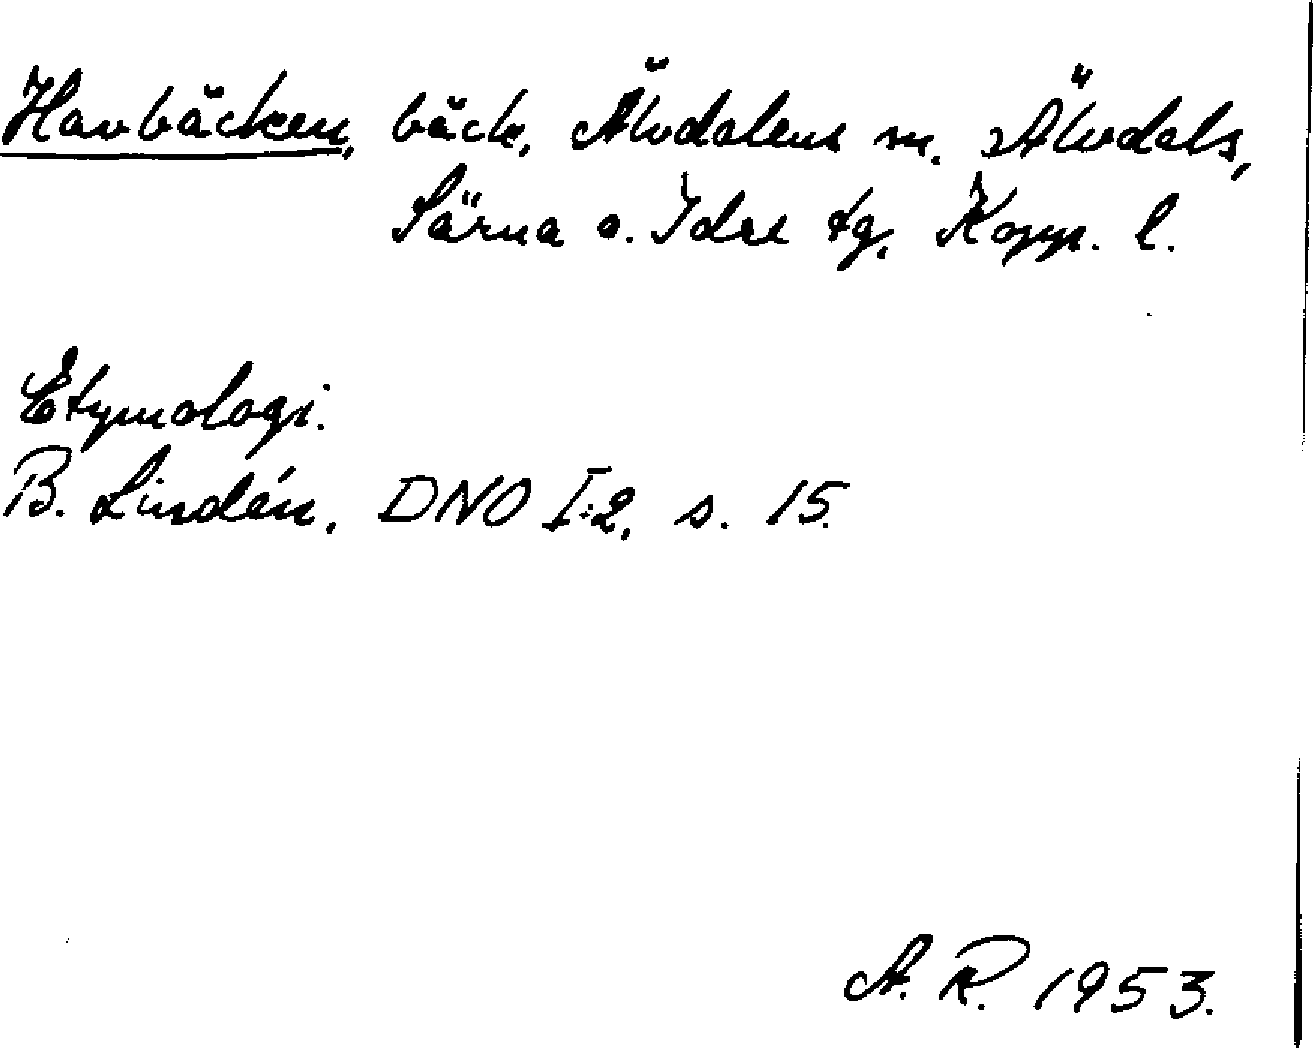 Havbäcken, bäck, Älvdalens sn. Älvdals,
Särna o. Idre tg, Kopp. l.
Etymologi.
B. Lindén, DNO I:2, s. 15.
A. R. 1953.